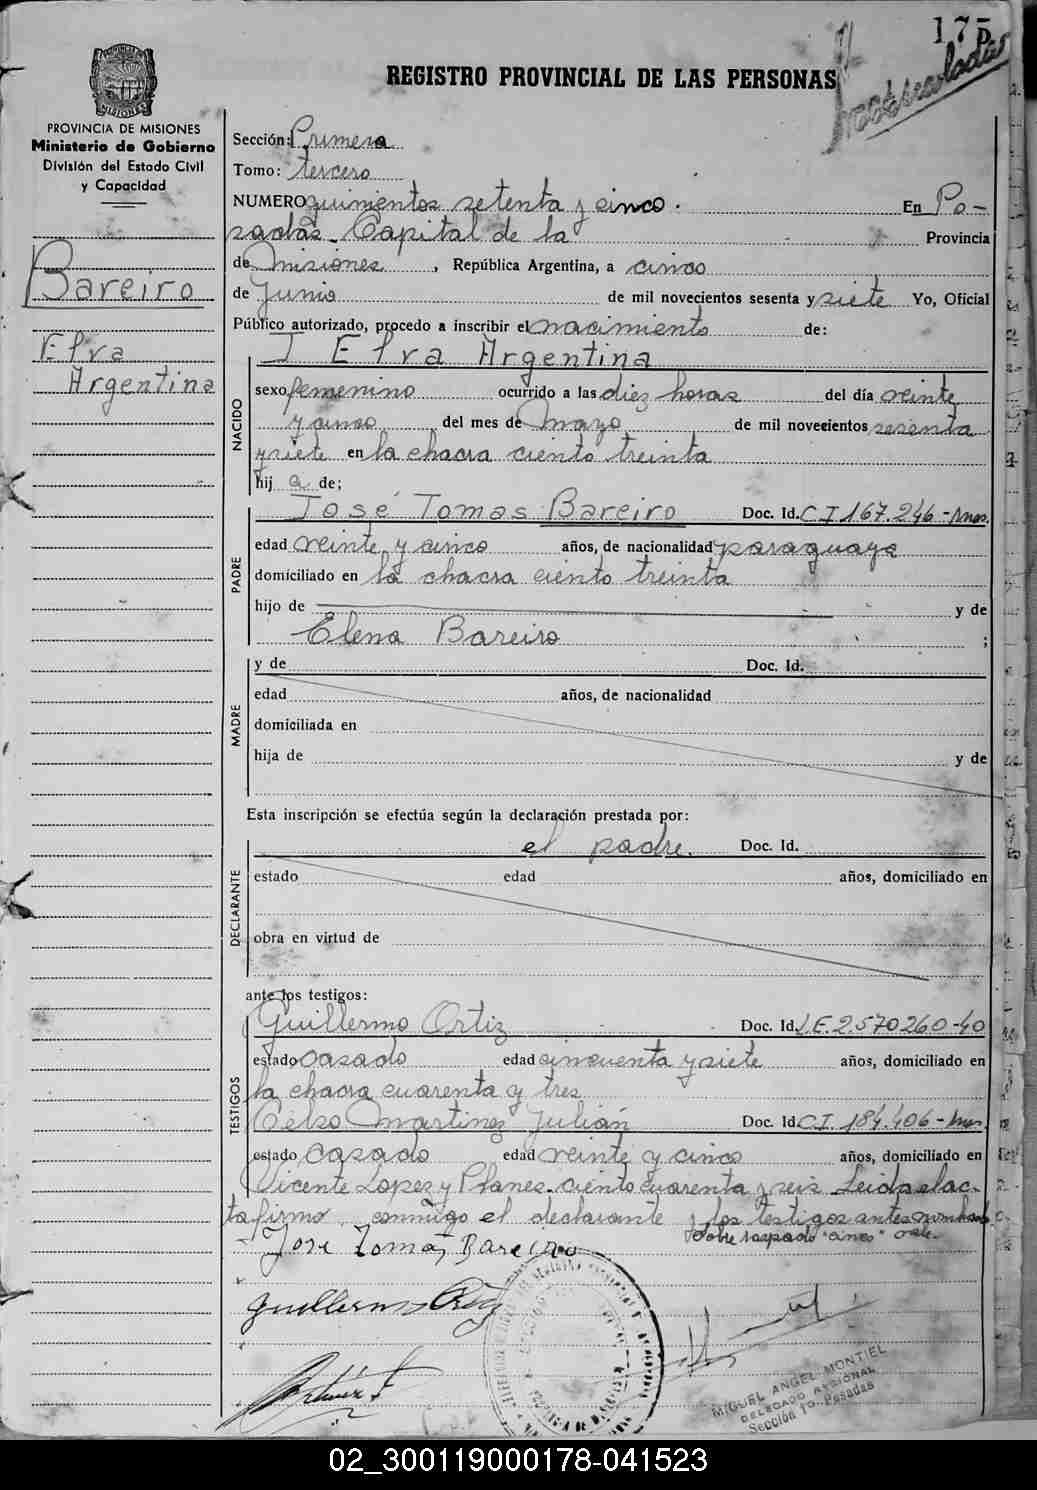 175
REGISTRO PROVINCIAL DE LAS PERSONAS
PROVINCIA DE MISIONES
Ministerio de Gobierno
División del Estado Civil
y Capacidad
Bareiro
Elva
Argentina
Sección: Primera
Tomo: tercero
NUMERO quinientos setenta y cinco. En Po-
sadas. Capital de la Provincia
de Misiones, República Argentina, a cinco
de Junio de mil novecientos sesenta y siete Yo, Oficial
Público autorizado, procedo a inscribir el nacimiento de:
Elva Argentina
NACIDO
sexo femenino ocurrido a las diez horas del día veinte
y cinco del mes de Mayo de mil novecientos sesenta
y siete en la chacra ciento treinta
hij a de;
José Tomas Bareiro Doc. Id. C I 167.246-Mnes.
PADRE
edad veinte y cinco años, de nacionalidad paraguaya
domiciliado en la chacra ciento treinta
hijo de y de
Elena Bareiro ;
MADRE
y de Doc. Id.
edad años, de nacionalidad
domiciliada en
hija de y de
Esta inscripción se efectúa según la declaración prestada por:
el padre. Doc. Id.
DECLARANTE
estado edad años, domiciliado en
obra en virtud de
ante los testigos:
Guillermo Ortiz Doc. Id. L.E.2.570260-40
TESTIGOS
estado casado edad cincuenta y siete años, domiciliado en
la chacra cuarenta y tres
Celso Martinez Julián Doc. Id C.I. 184.406-Mnes.
estado casado edad veinte y cinco años, domiciliado en
Vicente Lopez y Planes. ciento cuarenta y seis Leida el ac-
ta firmo conmigo el declarante y los testigos antes nombrados
sobre raspado "cinco" vale.
Jose Tomas Bareiro
Guillermo Ortiz
MIGUEL ANGEL MONTIEL
DELEGADO REGIONAL
Sección 1º Posadas
02_300119000178-041523